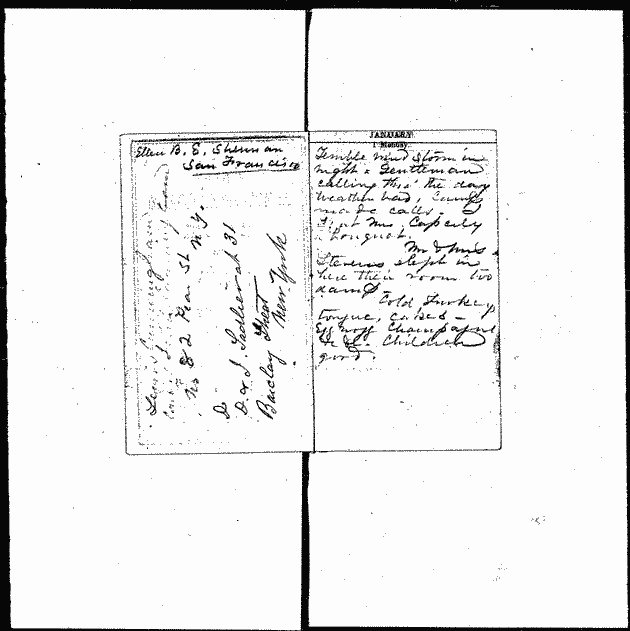 Ellen B. E. Sherman
San Francisco
Lewis Cunningham
No 82 Pear St N.Y.
D. & J. Sadlier at 31
Barclay Street
New York
JANUARY.
1 Monday.
Terrible wind storm in
night & Gentleman
calling thro' the day
weather bad, Cump
made calls -
Sent Mrs. Capcily
bouquet.
Mr & Mrs
Stevens slept in
here their room too
damp
Cold Turkey,
tongue, cakes -
Egg nogg Champagne
&c &c. Children
good.